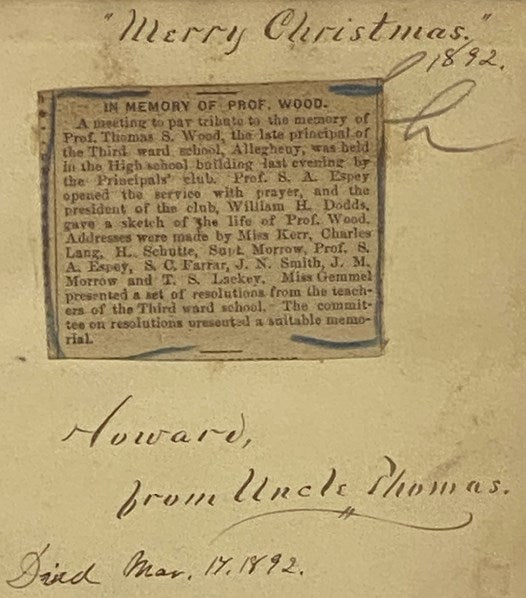 "Merry Christmas."
1892.
IN MEMORY OF PROF. WOOD.
A meeting to pay tribute to the memory of
Prof. Thomas S. Wood, the late principal of
the Third ward school, Allegheny, was held
in the High school building last evening by
the Principals' club. Prof. S. A. Espey
opened the service with prayer, and the
president of the club, William H. Dodds,
gave a sketch of the life of Prof. Wood.
Addresses were made by Miss Kerr, Charles
Lang, H. Schutte, Supt. Morrow, Prof. S.
A. Espey, S. C. Farrar, J. N. Smith, J. M.
Morrow and T. S. Lackey. Miss Gemmel
presented a set of resolutions from the teach-
ers of the Third ward school. The commit-
tee on resolutions presented a suitable memo-
rial.
Howard,
from Uncle Thomas.
Died Mar. 17. 1892.